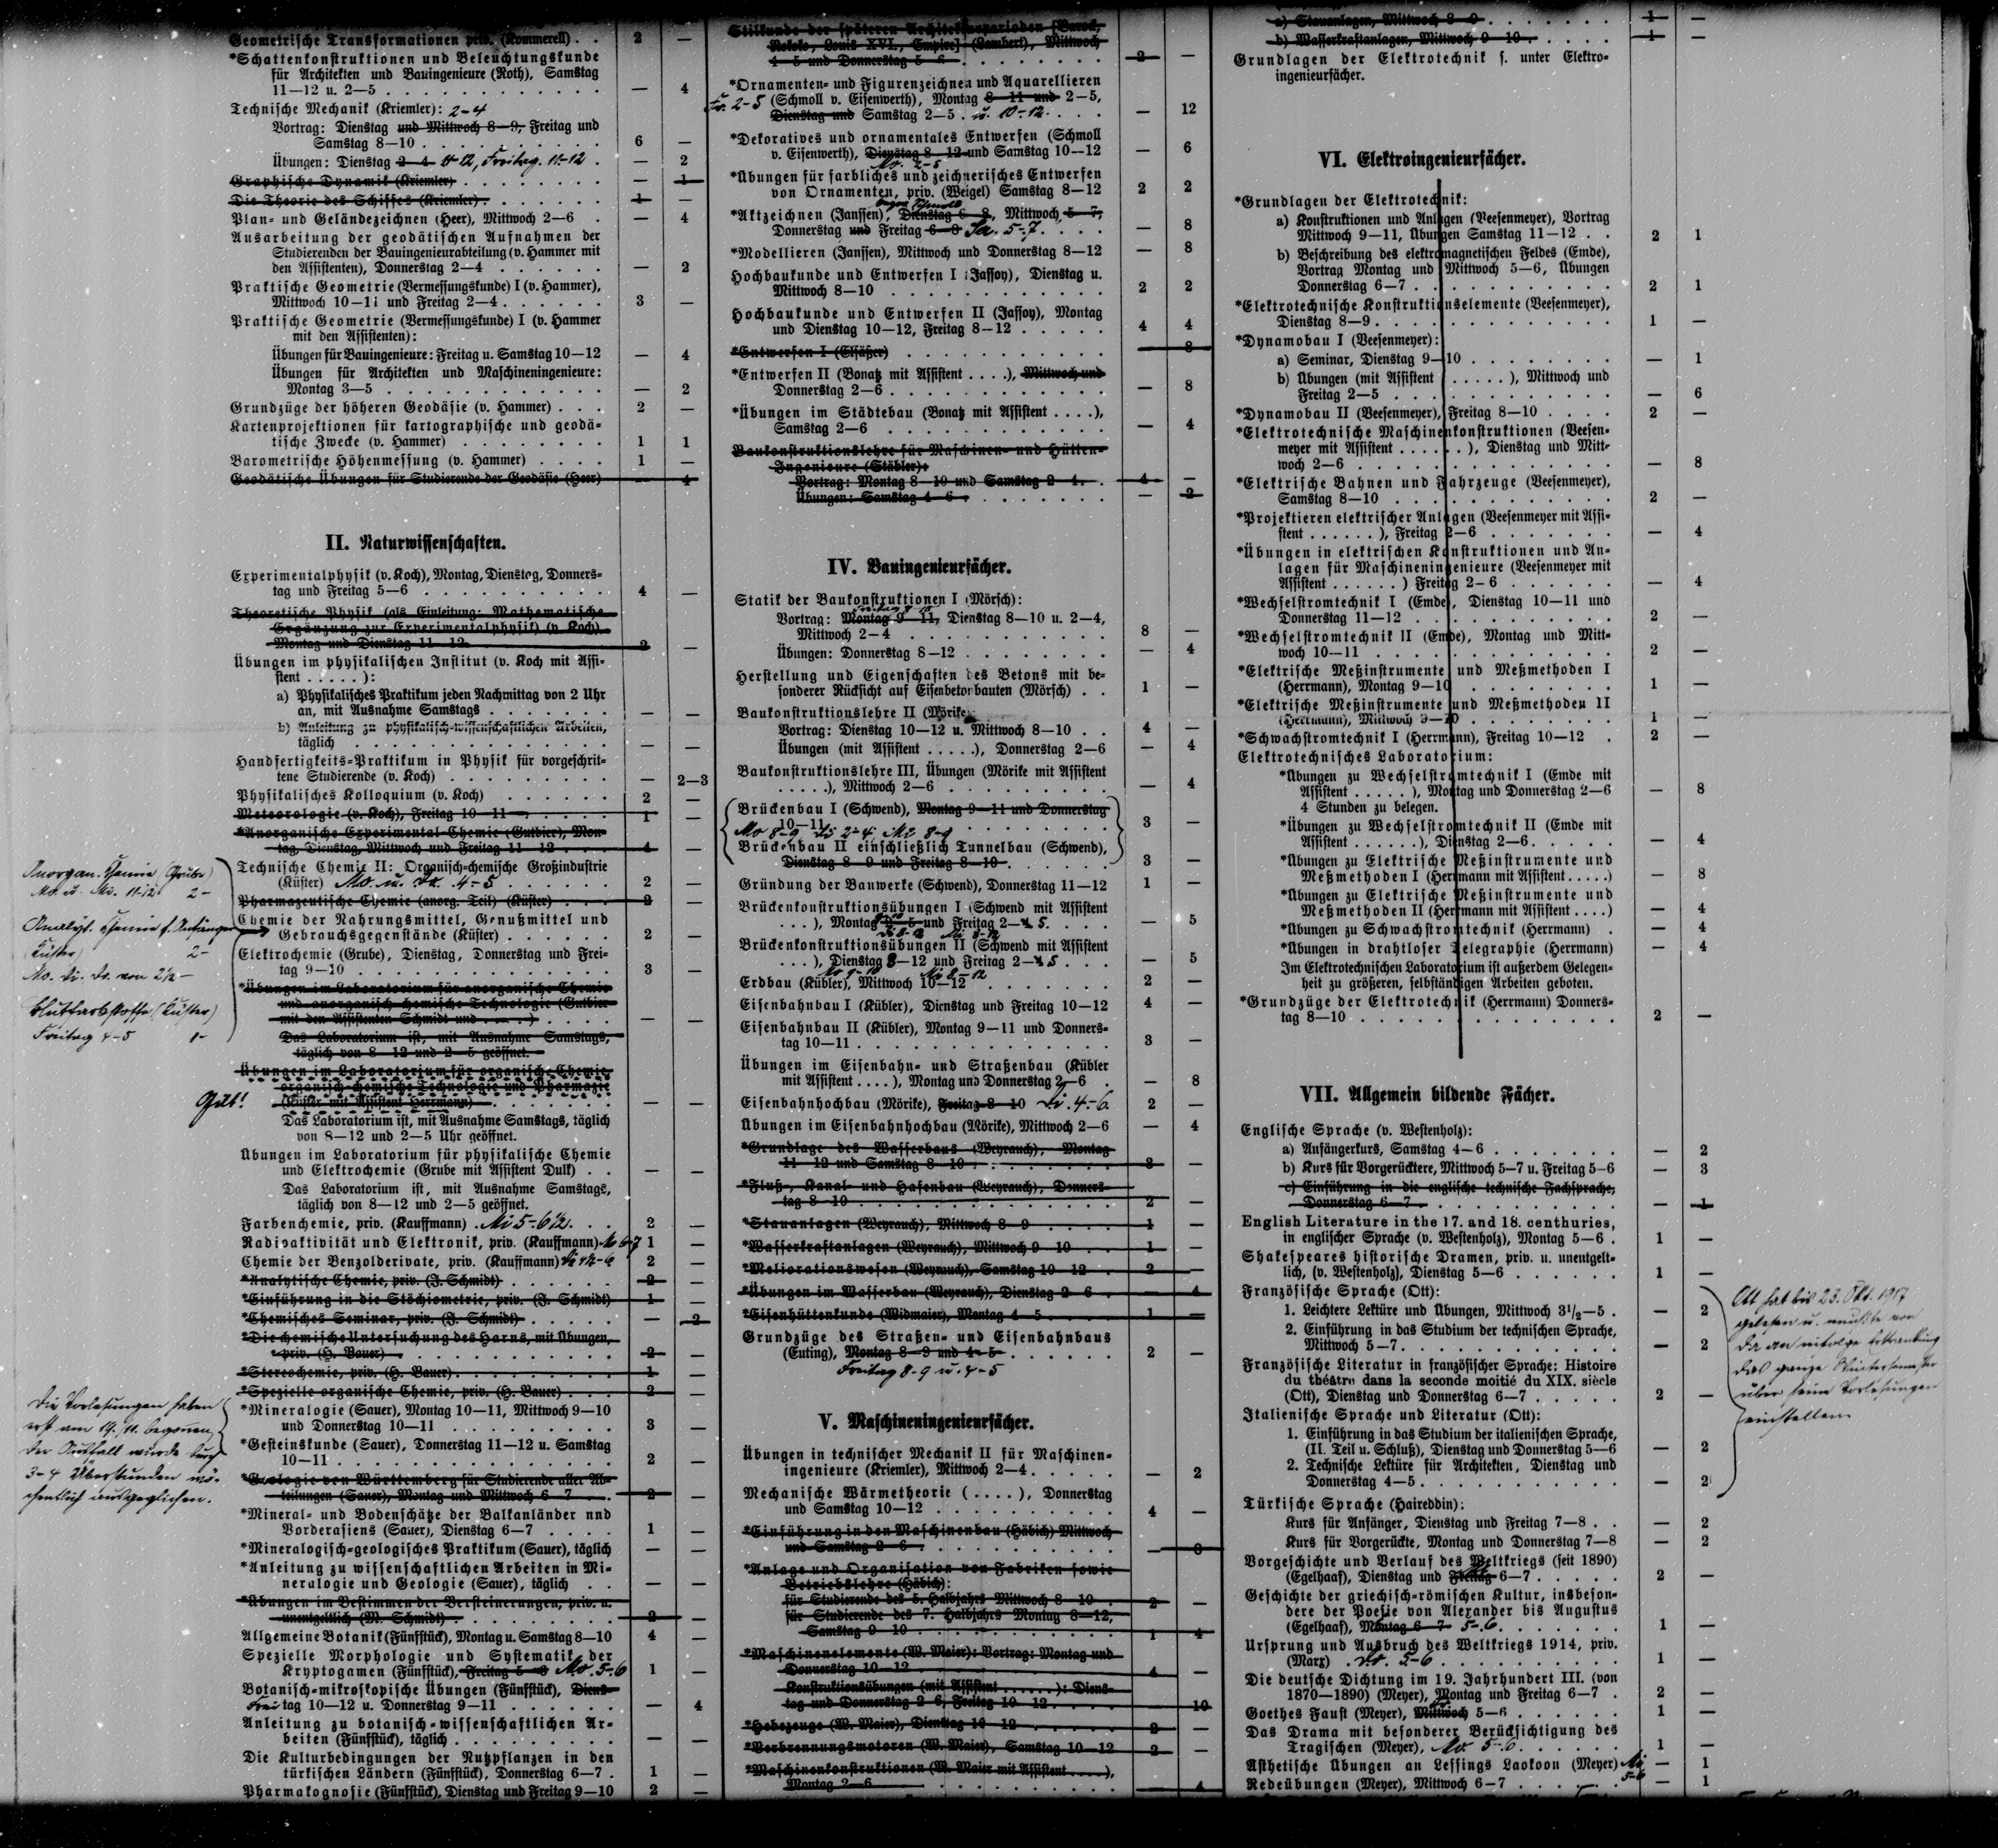 Geometrische Transformationen priv. (Kommerell) . . 2 —
*Schattenkonstruktionen und Beleuchtungskunde
für Architekten und Bauingenieure (Roth), Samstag
11—12 u. 2—5 . . . — 4
Technische Mechanik (Kriemler): 2-4
Vortrag: Dienstag und Mittwoch 8—9, Freitag und
Samstag 8—10 . . . 6 —
Übungen: Dienstag 2—4 11-12, Freitag. 11-12 . — 2
Graphische Dynamik (Kriemler) . . . — 1
Die Theorie des Schiffes (Kriemler) . . . 1 —
Plan- und Geländezeichnen (Heer), Mittwoch 2—6 . — 4
Ausarbeitung der geodätischen Aufnahmen der
Studierenden der Bauingenieurabteilung (v. Hammer mit
den Assistenten), Donnerstag 2—4 . . . — 2
Praktische Geometrie (Vermessungskunde) I (v. Hammer),
Mittwoch 10—11 und Freitag 2—4 . . . 3 —
Praktische Geometrie (Vermessungskunde) I (v. Hammer
mit den Assistenten):
Übungen für Bauingenieure: Freitag u. Samstag 10—12 — 4
Übungen für Architekten und Maschineningenieure:
Montag 3—5 . . . — 2
Grundzüge der höheren Geodäsie (v. Hammer) . . . 2 —
Kartenprojektionen für kartographische und geodä-
tische Zwecke (v. Hammer) . . . 1 1
Barometrische Höhenmessung (v. Hammer) . . . . 1 —
Geodätische Übungen für Studierende der Geodäsie (Heer) — 4
II. Naturwissenschaften.
Experimentalphysik (v. Koch), Montag, Dienstag, Donners-
tag und Freitag 5—6 . . . 4 —
Theoretische Physik (als Einleitung: Mathematische
Ergänzung zur Experimentalphysik) (v. Koch),
Montag und Dienstag 11—12 . . . 2 —
Übungen im physikalischen Institut (v. Koch mit Assi-
stent . . . . .):
a) Physikalisches Praktikum jeden Nachmittag von 2 Uhr
an, mit Ausnahme Samstags . . . — —
b) Anleitung zu physikalisch-wissenschaftlichen Arbeiten,
täglich . . . — —
Handfertigkeits-Praktikum in Physik für vorgeschrit-
tene Studierende (v. Koch) . . . — 2—3
Physikalisches Kolloquium (v. Koch) . . . 2 —
Meteorologie (v. Koch), Freitag 10—11 . . . 1 —
*Anorganische Experimental-Chemie (Gutbier), Mon-
tag, Dienstag, Mittwoch und Freitag 11—12 . . . 4 —
Technische Chemie II: Organisch-chemische Großindustrie
(Küster) Mo. u. Do. 4-5 . . . 2 —
Pharmazeutische Chemie (anorg. Teil) (Küster) . . . 2 —
Chemie der Nahrungsmittel, Genußmittel und
Gebrauchsgegenstände (Küster) . . . 2 —
Elektrochemie (Grube), Dienstag, Donnerstag und Frei-
tag 9—10 . . . 3 —
*Übungen im Laboratorium für anorganische Chemie
und anorganisch-chemische Technologie (Gutbier
mit den Assistenten Schmidt und . . . .) . . . — —
Das Laboratorium ist, mit Ausnahme Samstags,
täglich von 8—12 und 2—5 geöffnet.
Übungen im Laboratorium für organische Chemie,
organisch-chemische Technologie und Pharmazie
Gilt! (Küster mit Assistent Herrmann) . . . — —
Das Laboratorium ist, mit Ausnahme Samstags, täglich
von 8—12 und 2—5 Uhr geöffnet.
Übungen im Laboratorium für physikalische Chemie
und Elektrochemie (Grube mit Assistent Dulk) . . — —
Das Laboratorium ist, mit Ausnahme Samstags,
täglich von 8—12 und 2—5 geöffnet.
Farbenchemie, priv. (Kauffmann) . Mi 5-6½. . . 2 —
Radioaktivität und Elektronik, priv. (Kauffmann) Mo 6-7 1 —
Chemie der Benzolderivate, priv. (Kauffmann) 2 —
*Analytische Chemie, priv. (J. Schmidt) . . . 2 —
*Einführung in die Stöchiometrie, priv. (J. Schmidt) 1 —
*Chemisches Seminar, priv. (J. Schmidt) . . . — 2
*Die chemische Untersuchung des Harns, mit Übungen,
priv. (H. Bauer) . . . 2 —
*Stereochemie, priv. (H. Bauer) . . . 1 —
*Spezielle organische Chemie, priv. (H. Bauer) . . . 2 —
*Mineralogie (Sauer), Montag 10—11, Mittwoch 9—10
und Donnerstag 10—11 . . . 3 —
*Gesteinskunde (Sauer), Donnerstag 11—12 u. Samstag
10—11 . . . 2 —
*Geologie von Württemberg für Studierende aller Ab-
teilungen (Sauer), Montag und Mittwoch 6—7 . . . 2 —
*Mineral- und Bodenschätze der Balkanländer und
Vorderasiens (Sauer), Dienstag 6—7 . . . . 1 —
*Mineralogisch-geologisches Praktikum (Sauer), täglich — —
*Anleitung zu wissenschaftlichen Arbeiten in Mi-
neralogie und Geologie (Sauer), täglich . . — —
*Übungen im Bestimmen der Versteinerungen, priv. u.
unentgeltlich (M. Schmidt) . . . 2 —
Allgemeine Botanik (Fünfstück), Montag u. Samstag 8—10 4 —
Spezielle Morphologie und Systematik der
Kryptogamen (Fünfstück), Freitag 5—6 Mo. 5-6 1 —
Botanisch-mikroskopische Übungen (Fünfstück), Diens-
Freitag 10—12 u. Donnerstag 9—11 . . . — 4
Anleitung zu botanisch-wissenschaftlichen Ar-
beiten (Fünfstück), täglich . . . — —
Die Kulturbedingungen der Nutzpflanzen in den
türkischen Ländern (Fünfstück), Donnerstag 6—7 . 1 —
Pharmakognosie (Fünfstück), Dienstag und Freitag 9—10 2 —
Anorgan. Chemie (Grube)
Mo. u. Mi. 11-12 2-
Analyt. Chemie f. Anfänger
(Küster) 2-
Mo. Di. Do. von 2½-
Blutfarbstoffe (Küster)
Freitag 4-5 1-
Die Vorlesungen haben
erst am 19./11. begonnen,
der Ausfall wurde durch
3-4 Überstunden wö-
chentlich ausgeglichen.
Stilkunde der späteren Architekturperioden [Barock,
Rokoko, Louis XVI., Empire] (Lambert), Mittwoch
4—5 und Donnerstag 5—6 . . . 2 —
*Ornamenten- und Figurenzeichnen und Aquarellieren
Fr. 2-5 (Schmoll v. Eisenwerth), Montag 8—11 und 2—5,
Dienstag und Samstag 2—5 . u. 10-12. . . . — 12
*Dekoratives und ornamentales Entwerfen (Schmoll
v. Eisenwerth), Dienstag 8—12 und Samstag 10—12 — 6
Mo. 2-5
*Übungen für farbliches und zeichnerisches Entwerfen
von Ornamenten, priv. (Weigel) Samstag 8—12 2 2
*Aktzeichnen (Janssen), Dienstag 6—8, Mittwoch 5—7,
Donnerstag und Freitag 6—8 Sa. 5-7. . . . — 8
*Modellieren (Janssen), Mittwoch und Donnerstag 8—12 — 8
Hochbaukunde und Entwerfen I (Jassoy), Dienstag u.
Mittwoch 8—10 . . . 2 2
Hochbaukunde und Entwerfen II (Jassoy), Montag
und Dienstag 10—12, Freitag 8—12 . . . 4 4
*Entwerfen I (Elsäßer) . . . — 8
*Entwerfen II (Bonatz mit Assistent . . . .), Mittwoch und
Donnerstag 2—6 . . . — 8
*Übungen im Städtebau (Bonatz mit Assistent . . . .),
Samstag 2—6 . . . — 4
Baukonstruktionslehre für Maschinen- und Hütten-
Ingenieure (Stäbler):
Vortrag: Montag 8—10 und Samstag 2—4 . . 4 —
Übungen: Samstag 4—6 . . . — 2
IV. Bauingenieurfächer.
Statik der Baukonstruktionen I (Mörsch):
Freitag 8-10
Vortrag: Montag 9—11, Dienstag 8—10 u. 2—4,
Mittwoch 2—4 . . . 8 —
Übungen: Donnerstag 8—12 . . . — 4
Herstellung und Eigenschaften des Betons mit be-
sonderer Rücksicht auf Eisenbetonbauten (Mörsch) . . 1 —
Baukonstruktionslehre II (Mörike)
Vortrag: Dienstag 10—12 u. Mittwoch 8—10 . . 4 —
Übungen (mit Assistent . . . . .), Donnerstag 2—6 — 4
Baukonstruktionslehre III, Übungen (Mörike mit Assistent
. . . . .), Mittwoch 2—6 . . . — 4
Brückenbau I (Schwend), Montag 9—11 und Donnerstag
10—11 . . . 3 —
Mo 8-9 Di 2-4 Mi 8-9
Brückenbau II einschließlich Tunnelbau (Schwend),
Dienstag 8—9 und Freitag 8—10 . . . 3 —
Gründung der Bauwerke (Schwend), Donnerstag 11—12 1 —
Brückenkonstruktionsübungen I (Schwend mit Assistent
. . . ), Montag 2—5 und Freitag 2—4 5. . . . — 5
Brückenkonstruktionsübungen II (Schwend mit Assistent
. . . ), Dienstag 8—12 und Freitag 2—4 5 . . . — 5
Mo 9-10 Mi 8-12
Erdbau (Kübler), Mittwoch 10—12 . . . 2 —
Eisenbahnbau I (Kübler), Dienstag und Freitag 10—12 4 —
Eisenbahnbau II (Kübler), Montag 9—11 und Donners-
tag 10—11 . . . 3 —
Übungen im Eisenbahn- und Straßenbau (Kübler
mit Assistent . . . .), Montag und Donnerstag 2—6 . — 8
Eisenbahnhochbau (Mörike), Freitag 8—10 Di. 4-6. 2 —
Übungen im Eisenbahnhochbau (Mörike), Mittwoch 2—6 — 4
*Grundlage des Wasserbaus (Weyrauch), Montag
11—12 und Samstag 8—10 . . . 3 —
*Fluß-, Kanal- und Hafenbau (Weyrauch), Donners-
tag 8—10 . . . 2 —
*Stauanlagen (Weyrauch), Mittwoch 8—9 . . . 1 —
*Wasserkraftanlagen (Weyrauch), Mittwoch 9—10 . . 1 —
*Meliorationswesen (Weyrauch), Samstag 10—12 . . 2 —
*Übungen im Wasserbau (Weyrauch), Dienstag 2—6 . — 4
*Eisenhüttenkunde (Widmaier), Montag 4—5 . . . 1 —
Grundzüge des Straßen- und Eisenbahnbaus
(Euting), Montag 8—9 und 4—5 . . . 2 —
Freitag 8-9 u. 4-5
V. Maschineningenieurfächer.
Übungen in technischer Mechanik II für Maschinen-
ingenieure (Kriemler), Mittwoch 2—4 . . . — 2
Mechanische Wärmetheorie (. . . .), Donnerstag
und Samstag 10—12 . . . 4 —
*Einführung in den Maschinenbau (Häbich) Mittwoch
und Samstag 2—6 . . . — 8
*Anlage und Organisation von Fabriken sowie
Betriebslehre (Häbich):
für Studierende des 5. Halbjahrs Mittwoch 8—10 . 2 —
für Studierende des 7. Halbjahrs Montag 8—12,
Samstag 9—10 . . . 1 4
*Maschinenelemente (W. Maier): Vortrag: Montag und
Donnerstag 10—12 . . . 4 —
Konstruktionsübungen (mit Assistent . . . . . .): Diens-
tag und Donnerstag 2—6, Freitag 10—12 . . . — 10
*Hebezeuge (W. Maier), Dienstag 10—12 . . . 2 —
*Verbrennungsmotoren (W. Maier), Samstag 10—12 2 —
*Maschinenkonstruktionen (W. Maier mit Assistent . . . . .),
Montag 2—6 . . . — 4
a) Stauanlagen, Mittwoch 8—9 . . . 1 —
b) Wasserkraftanlagen, Mittwoch 9—10 . . . 1 —
Grundlagen der Elektrotechnik s. unter Elektro-
ingenieurfächer.
VI. Elektroingenieurfächer.
*Grundlagen der Elektrotechnik:
a) Konstruktionen und Anlagen (Veesenmeyer), Vortrag
Mittwoch 9—11, Übungen Samstag 11—12 . . 2 1
b) Beschreibung des elektromagnetischen Feldes (Emde),
Vortrag Montag und Mittwoch 5—6, Übungen
Donnerstag 6—7 . . . 2 1
*Elektrotechnische Konstruktionselemente (Veesenmeyer),
Dienstag 8—9 . . . 1 —
*Dynamobau I (Veesenmeyer):
a) Seminar, Dienstag 9—10 . . . — 1
b) Übungen (mit Assistent . . . . . ), Mittwoch und
Freitag 2—5 . . . — 6
*Dynamobau II (Veesenmeyer), Freitag 8—10 . . . . 2 —
*Elektrotechnische Maschinenkonstruktionen (Veesen-
meyer mit Assistent . . . . . . ), Dienstag und Mitt-
woch 2—6 . . . — 8
*Elektrische Bahnen und Fahrzeuge (Veesenmeyer),
Samstag 8—10 . . . 2 —
*Projektieren elektrischer Anlagen (Veesenmeyer mit Assi-
stent . . . . . . ), Freitag 2—6 . . . — 4
*Übungen in elektrischen Konstruktionen und An-
lagen für Maschineningenieure (Veesenmeyer mit
Assistent . . . . . . ) Freitag 2—6 . . . — 4
*Wechselstromtechnik I (Emde), Dienstag 10—11 und
Donnerstag 11—12 . . . 2 —
*Wechselstromtechnik II (Emde), Montag und Mitt-
woch 10—11 . . . 2 —
*Elektrische Meßinstrumente und Meßmethoden I
(Herrmann), Montag 9—10 . . . 1 —
*Elektrische Meßinstrumente und Meßmethoden II
(Herrmann), Mittwoch 9—10 . . . 1 —
*Schwachstromtechnik I (Herrmann), Freitag 10—12 . 2 —
Elektrotechnisches Laboratorium:
*Übungen zu Wechselstromtechnik I (Emde mit
Assistent . . . . . ), Montag und Donnerstag 2—6 — 8
4 Stunden zu belegen.
*Übungen zu Wechselstromtechnik II (Emde mit
Assistent . . . . . .), Dienstag 2—6 . . . — 4
*Übungen zu Elektrische Meßinstrumente und
Meßmethoden I (Herrmann mit Assistent . . . . .) — 8
*Übungen zu Elektrische Meßinstrumente und
Meßmethoden II (Herrmann mit Assistent . . . .) — 4
*Übungen zu Schwachstromtechnik (Herrmann) . — 4
*Übungen in drahtloser Telegraphie (Herrmann) — 4
Im Elektrotechnischen Laboratorium ist außerdem Gelegen-
heit zu größeren, selbständigen Arbeiten geboten.
*Grundzüge der Elektrotechnik (Herrmann) Donners-
tag 8—10 . . . 2 —
VII. Allgemein bildende Fächer.
Englische Sprache (v. Westenholz):
a) Anfängerkurs, Samstag 4—6 . . . — 2
b) Kurs für Vorgerücktere, Mittwoch 5—7 u. Freitag 5—6 — 3
c) Einführung in die englische technische Fachsprache,
Donnerstag 6—7 . . . — 1
English Literature in the 17. and 18. centhuries,
in englischer Sprache (v. Westenholz), Montag 5—6 . 1 —
Shakespeares historische Dramen, priv. u. unentgelt-
lich, (v. Westenholz), Dienstag 5—6 . . . 1 —
Französische Sprache (Ott):
1. Leichtere Lektüre und Übungen, Mittwoch 3½—5 . — 2
2. Einführung in das Studium der technischen Sprache,
Mittwoch 5—7 . . . — 2
Französische Literatur in französischer Sprache: Histoire
du théatre dans la seconde moitié du XIX. siècle
(Ott), Dienstag und Donnerstag 6—7 . . . 2 —
Italienische Sprache und Literatur (Ott):
1. Einführung in das Studium der italienischen Sprache,
(II. Teil u. Schluß), Dienstag und Donnerstag 5—6 — 2
2. Technische Lektüre für Architekten, Dienstag und
Donnerstag 4—5 . . . — 2
Türkische Sprache (Haireddin):
Kurs für Anfänger, Dienstag und Freitag 7—8 . . — 2
Kurs für Vorgerückte, Montag und Donnerstag 7—8 — 2
Vorgeschichte und Verlauf des Weltkriegs (seit 1890)
(Egelhaaf), Dienstag und Freitag 6—7 . . . 2 —
Geschichte der griechisch-römischen Kultur, insbeson-
dere der Poesie von Alexander bis Augustus
(Egelhaaf), Montag 6—7 5-6 . . . 1 —
Ursprung und Ausbruch des Weltkriegs 1914, priv.
(Marx) . Do. 5-6 . . . 1 —
Die deutsche Dichtung im 19. Jahrhundert III. (von
1870—1890) (Meyer), Montag und Freitag 6—7 . 2 —
Goethes Faust (Meyer), Mittwoch 5—6 . . . 1 —
Das Drama mit besonderer Berücksichtigung des
Tragischen (Meyer), Mo. 5-6 . . . 1 —
Ästhetische Übungen an Lessings Laokoon (Meyer) Mi 5-6 — 1
Redeübungen (Meyer), Mittwoch 6—7 . . . — 1
Ott hat bis 23. Okt. 1917
gelesen u. mußte von
da an infolge Erkrankung
das ganze Wintersemester
über seine Vorlesungen
einstellen